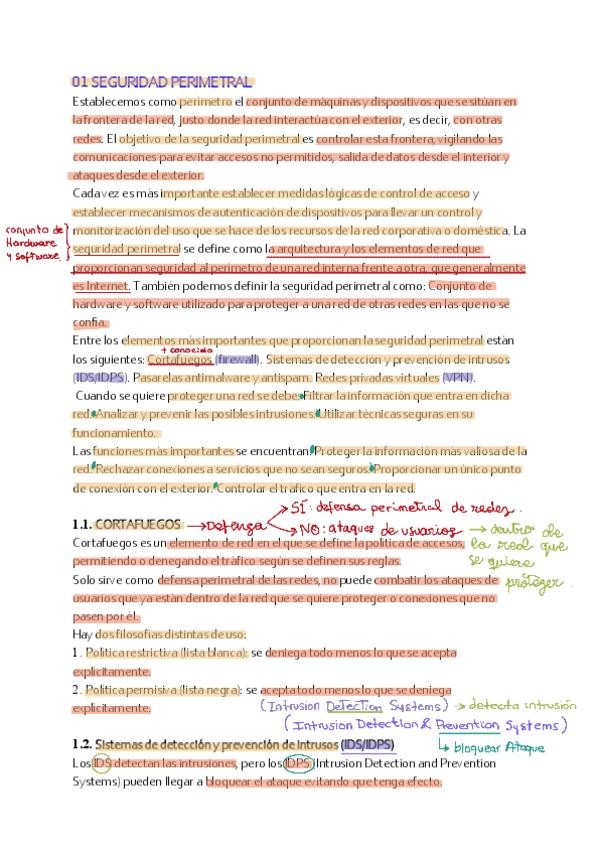 01 SEGURIDAD PERIMETRAL
Establecemos como perímetro el conjunto de máquinas y dispositivos que se sitúan en
la frontera de la red, justo donde la red interactúa con el exterior, es decir, con otras
redes. El objetivo de la seguridad perimetral es controlar esta frontera, vigilando las
comunicaciones para evitar accesos no permitidos, salida de datos desde el interior y
ataques desde el exterior.
Cada vez es más importante establecer medidas lógicas de control de acceso y
establecer mecanismos de autenticación de dispositivos para llevar un control y
monitorización del uso que se hace de los recursos de la red corporativa o doméstica. La
conjunto de
Hardware
y software
seguridad perimetral se define como la arquitectura y los elementos de red que
proporcionan seguridad al perímetro de una red interna frente a otra, que generalmente
es Internet. También podemos definir la seguridad perimetral como: Conjunto de
hardware y software utilizado para proteger a una red de otras redes en las que no se
confía.
Entre los elementos más importantes que proporcionan la seguridad perimetral están
+ conocido
los siguientes: Cortafuegos (firewall). Sistemas de detección y prevención de intrusos
(IDS/IDPS). Pasarelas antimalware y antispam. Redes privadas virtuales (VPN).
Cuando se quiere proteger una red se debe: Filtrar la información que entra en dicha
red. Analizar y prevenir las posibles intrusiones. Utilizar técnicas seguras en su
funcionamiento.
Las funciones más importantes se encuentran: Proteger la información más valiosa de la
red. Rechazar conexiones a servicios que no sean seguros. Proporcionar un único punto
de conexión con el exterior. Controlar el tráfico que entra en la red.
1.1. CORTAFUEGOS → Defensa
SÍ: defensa perimetral de redes.
NO: ataques de usuarios → dentro de
la red que
se quiere
proteger.
Cortafuegos es un elemento de red en el que se define la política de accesos,
permitiendo o denegando el tráfico según se definen sus reglas.
Solo sirve como defensa perimetral de las redes, no puede combatir los ataques de
usuarios que ya están dentro de la red que se quiere proteger o conexiones que no
pasen por él.
Hay dos filosofías distintas de uso:
1. Política restrictiva (lista blanca): se deniega todo menos lo que se acepta
explícitamente.
2. Política permisiva (lista negra): se acepta todo menos lo que se deniega
explícitamente.
(Intrusion Detection Systems) → detecta intrusión
(Intrusion Detection & Prevention Systems)
↳ bloquear Ataque
1.2. Sistemas de detección y prevención de intrusos (IDS/IDPS)
Los IDS detectan las intrusiones, pero los IDPS (Intrusion Detection and Prevention
Systems) pueden llegar a bloquear el ataque evitando que tenga efecto.